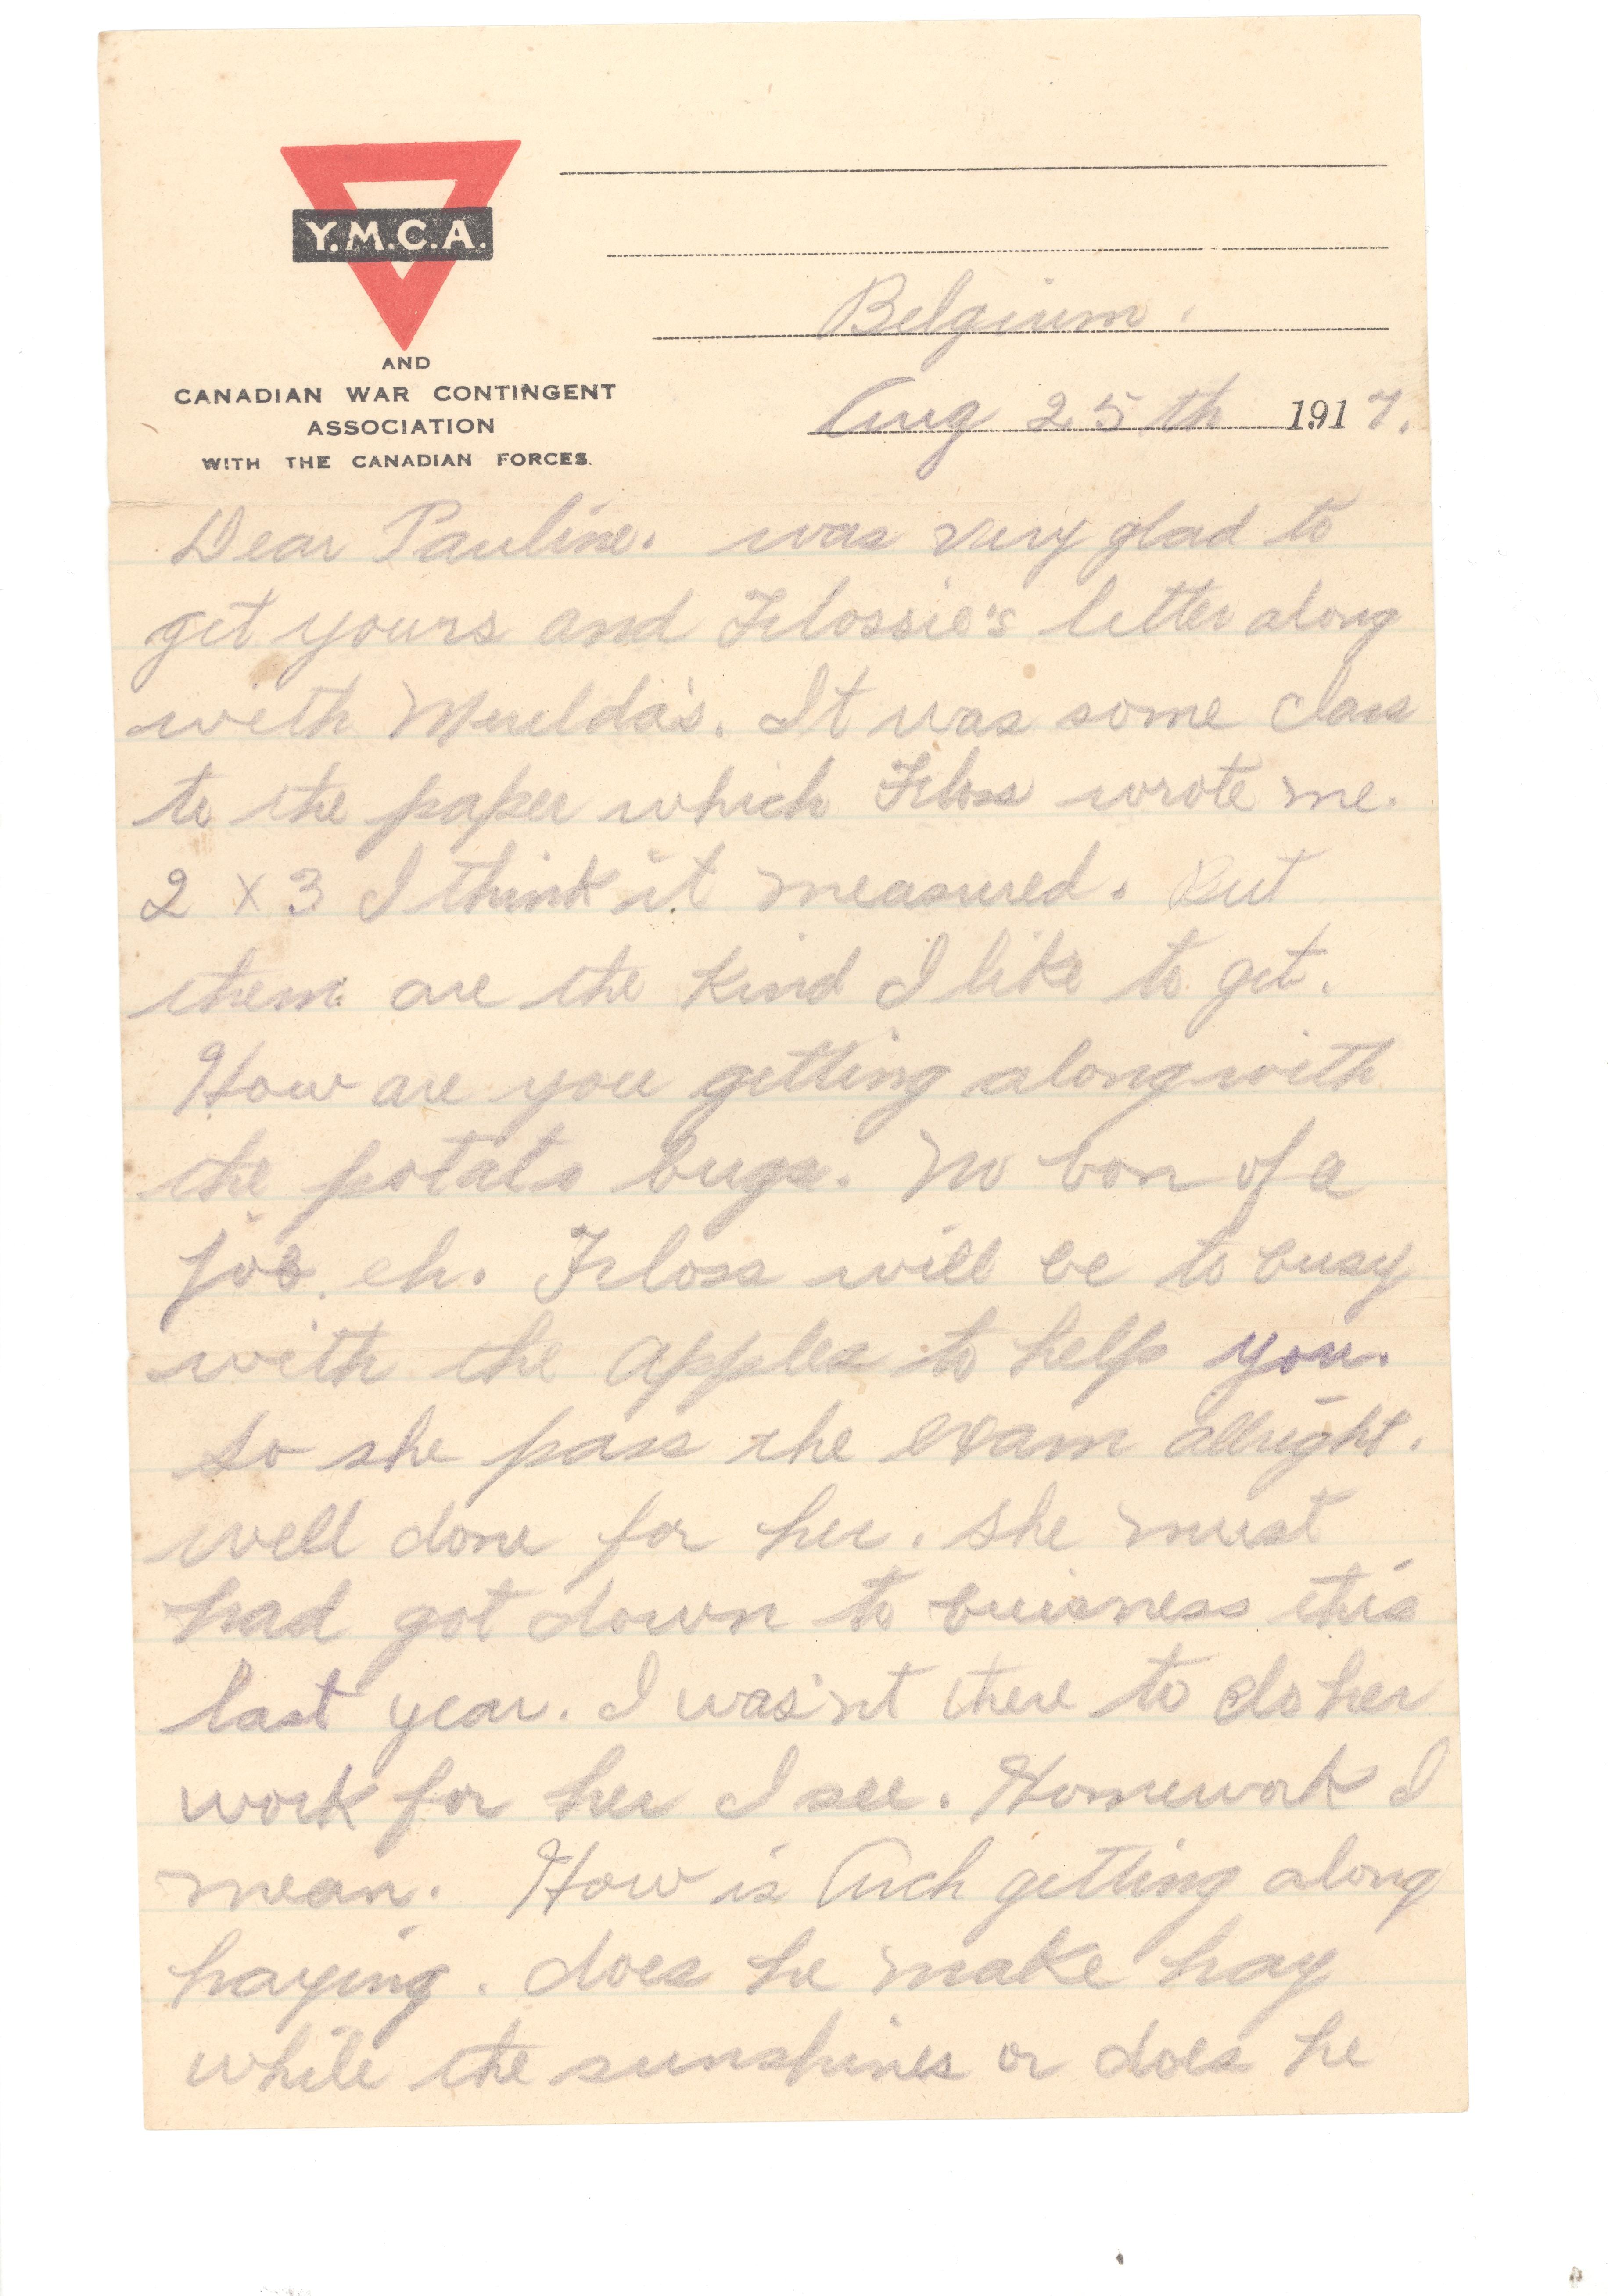 Y.M.C.A.
AND
CANADIAN WAR CONTINGENT
ASSOCIATION
WITH THE CANADIAN FORCES.
Belgium.
Aug 25th 1917.
Dear Pauline. was very glad to
get yours and Flossie's letter along
with Muelda's. It was some class
to the paper which Floss wrote me.
2 x 3 I think it measured. But
them are the kind I like to get.
How are you getting along with
the potato bugs. No bon of a
job eh. Floss will be to busy
with the apples to help you.
So she pass the exam allright.
well done for her. She must
had got down to buisness this
last year. I was'nt there to do her
work for her I see. Homework I
mean. How is Arch getting along
haying. does he make hay
while the sunshines or does he